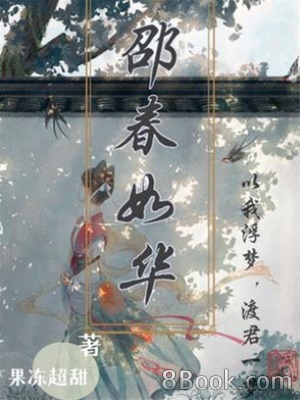 邵春如华
以我浮梦，渡君一
著
果冻超甜
8Book.com